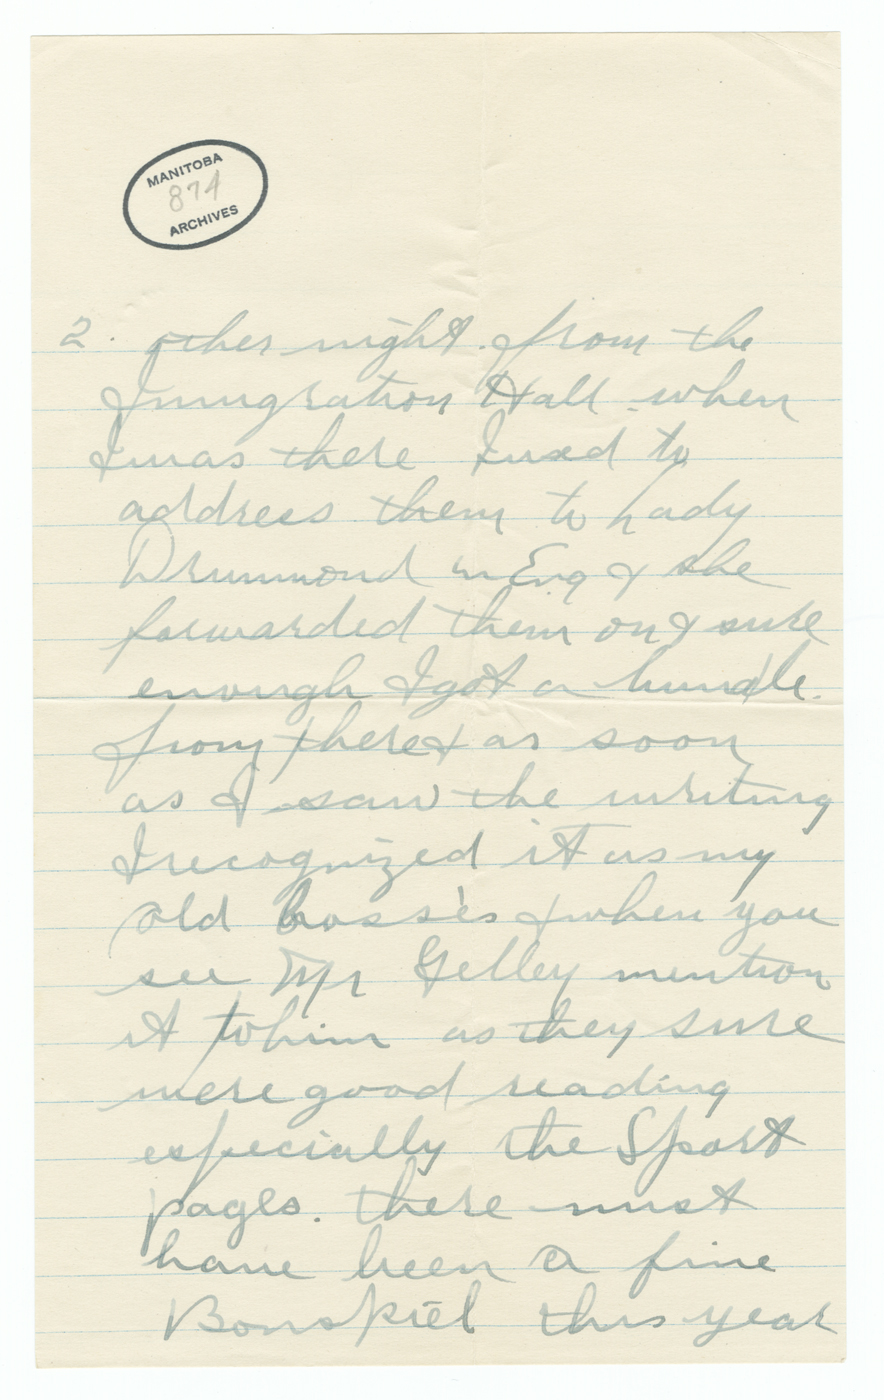 MANITOBA
874
ARCHIVES
2. other night. from the
Immigration Hall when
I was there I used to
address them to Lady
Drummond in Eng & she
forwarded them on & sure
enough I got a bundle.
from there & as soon
as I saw the writing
I recognized it as my
old bosse's & when you
see Mr Gelley mention
it to him as they sure
were good reading
especially the Sport
pages. there must
have been a fine
Bonspiel this year